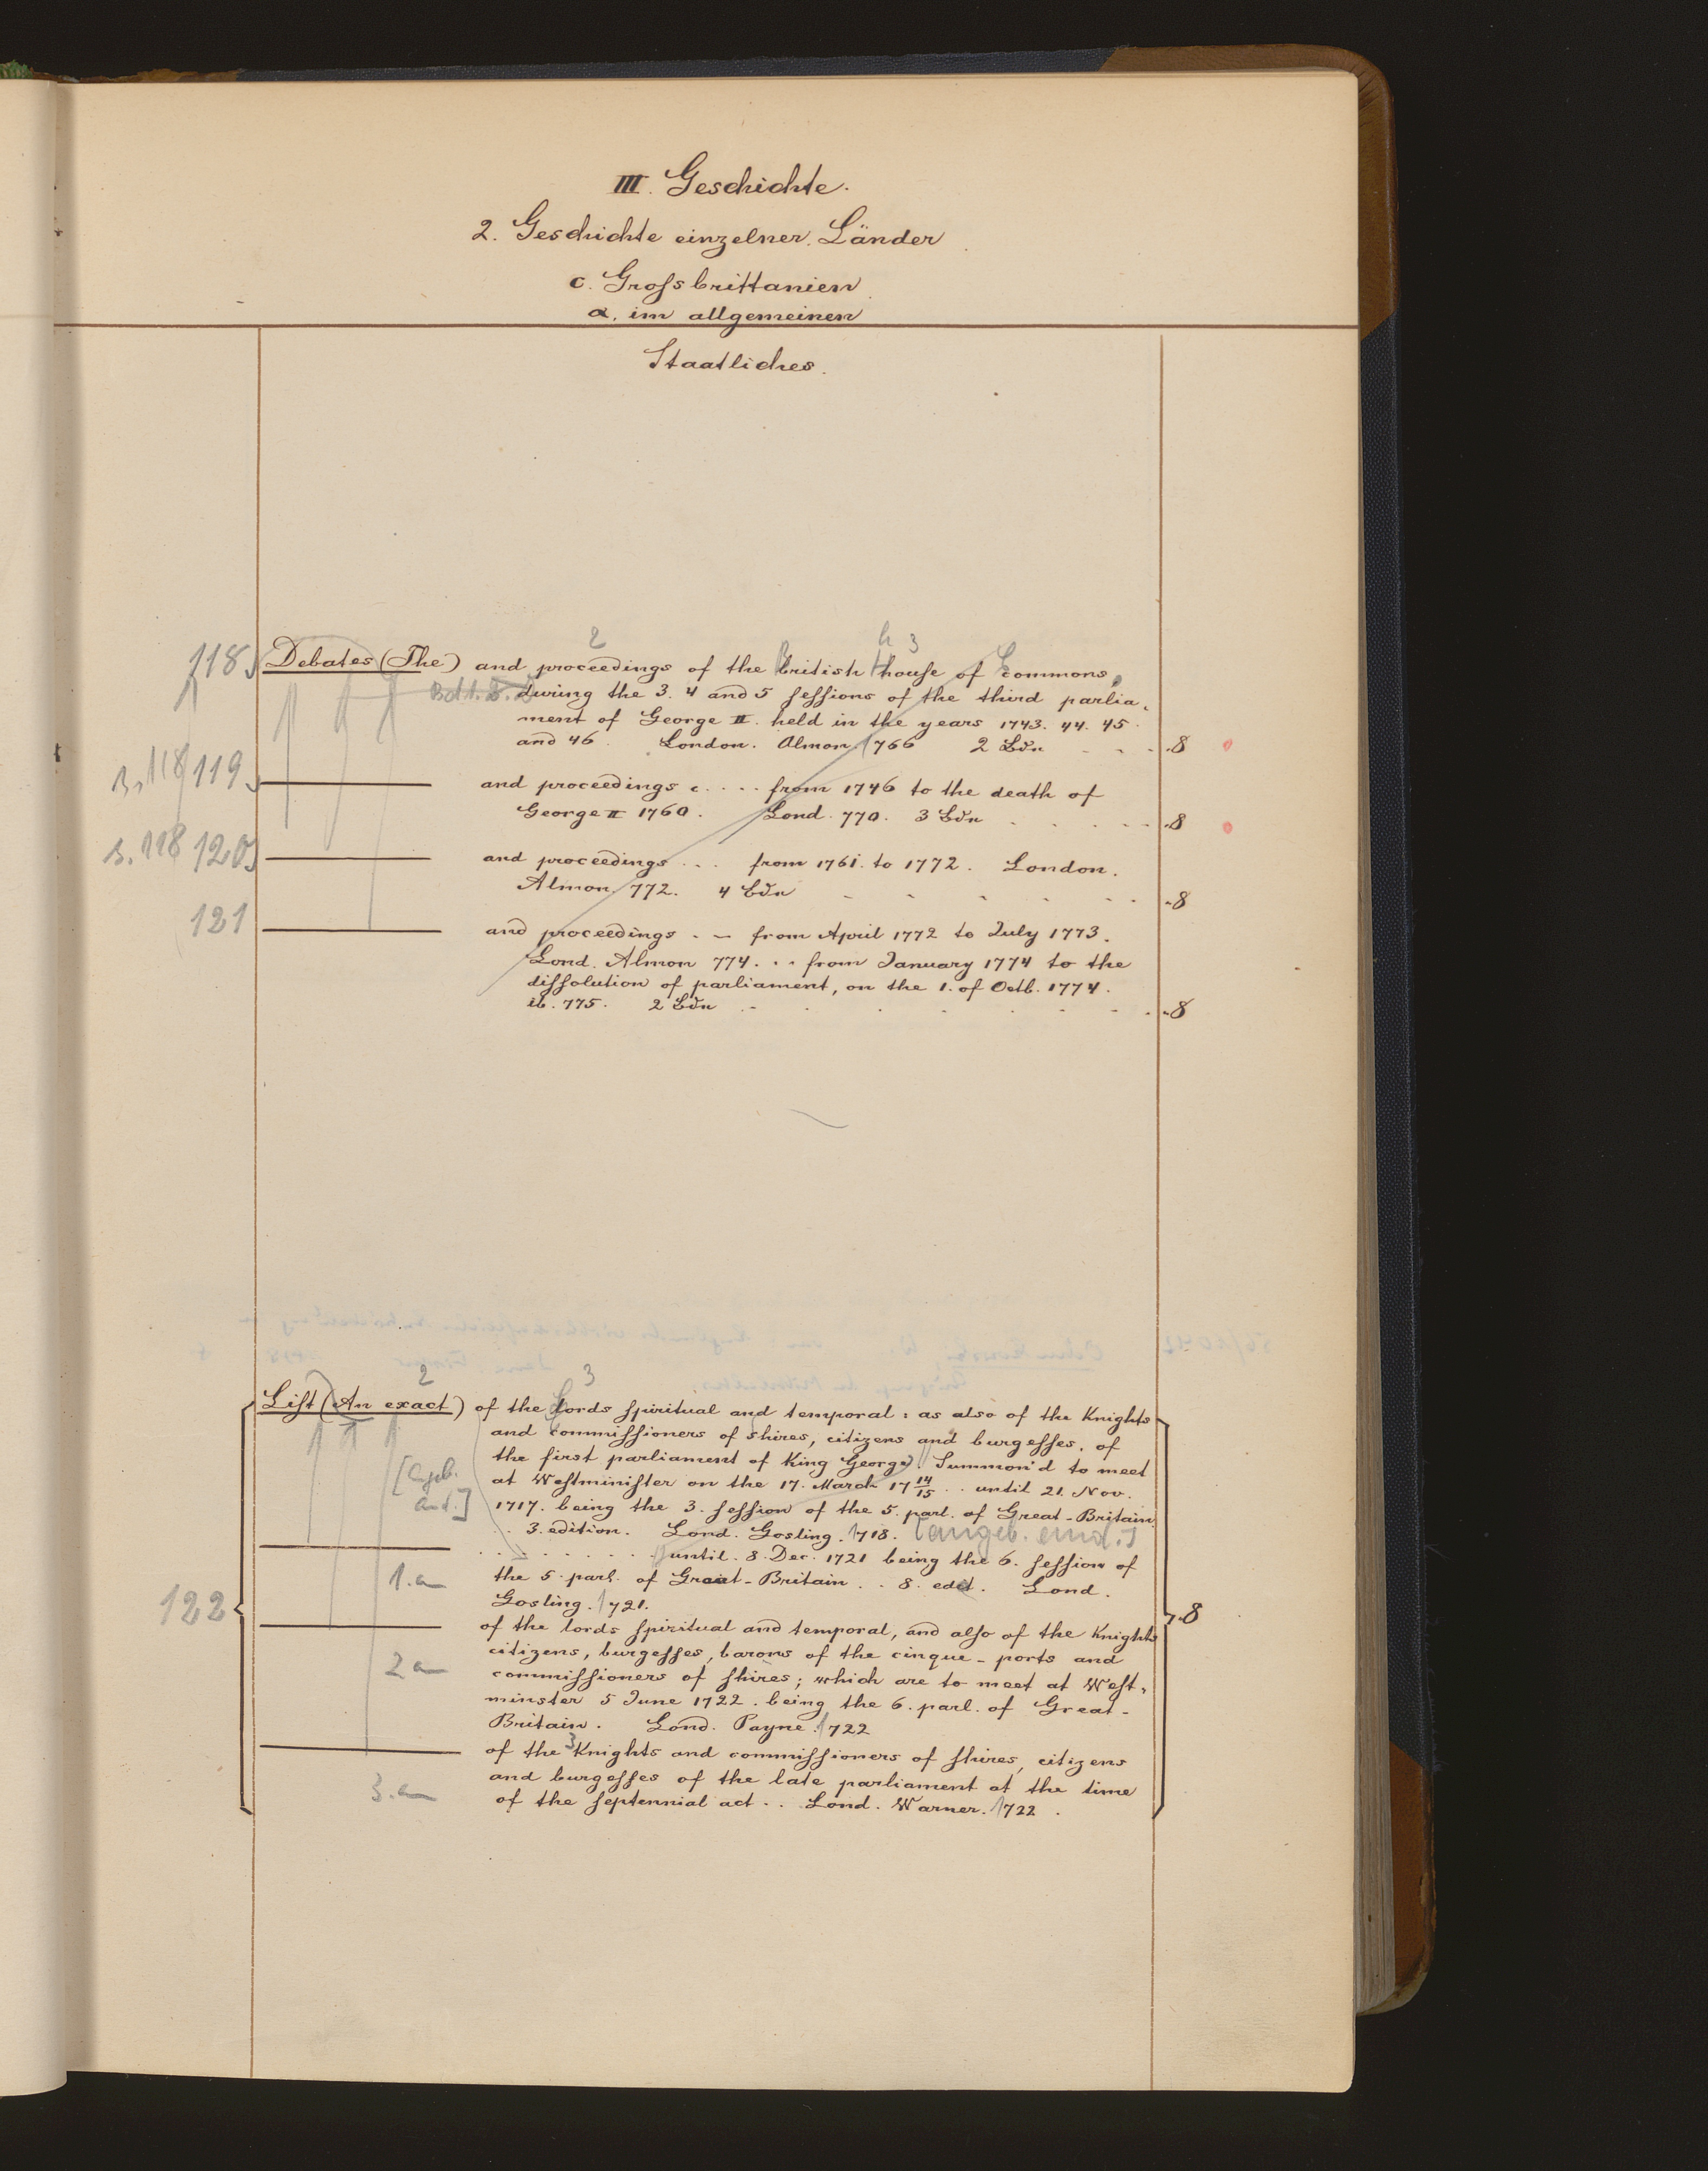 III. Geschichte.
2. Geschichte einzelner Länder
c. Grossbrittanien
a. im allgemeinen
Staatliches.
2 h 3
118. Debates (The) and proceedings of the british house of commons,
during the 3. 4 and 5 sessions of the third parlia-
ment of George II. held in the years 1743. 44. 45.
and 46. London. Almon 1766 2 Bdn - - - 8
s. 118 119. ——— and proceedings c. . . . from 1746 to the death of
George II 1760. Lond. 770. 3 Bdn . . . . - 8
s. 118 120. ——— and proceedings . . . from 1761. to 1772. London.
Almon. 772. 4 Bdn - - - - - 8
121 ——— and proceedings . - from April 1772 to July 1773.
Lond. Almon 774. . . from January 1774 to the
dissolution of parliament, on the 1. of Octb. 1774.
ib. 775. 2 Bdn - . . . . . 8
2 3
List (An exact) of the Lords spiritual and temporal: as also of the Knights
and commissioners of shires, citizens and burgesses, of
the first parliament of King George. Summon'd to meet
at Westminister on the 17. March 17 14/15 . . until 21. Nov.
1717. being the 3. session of the 5. parl. of Great-Britain.
. . 3. edition. Lond. Gosling. 1718. [angeb. sind:]
——— . . . . . . . . until. 8. Dec. 1721 being the 6. session of
1. an the 5. parl. of Great-Britain . . 8. edit. Lond.
Gosling. 1721.
122 8
——— of the lords spiritual and temporal, and also of the Knights
citizens, burgesses, barons of the cinque-ports and
2 an commissioners of shires; which are to meet at West-
minster 5 June 1722. being the 6. parl. of Great-
Britain. Lond. Payne. 1722
——— of the Knights and commissioners of shires, citizens
3. an and burgesses of the late parliament at the time
of the septennial act . . Lond. Warner. 1722.